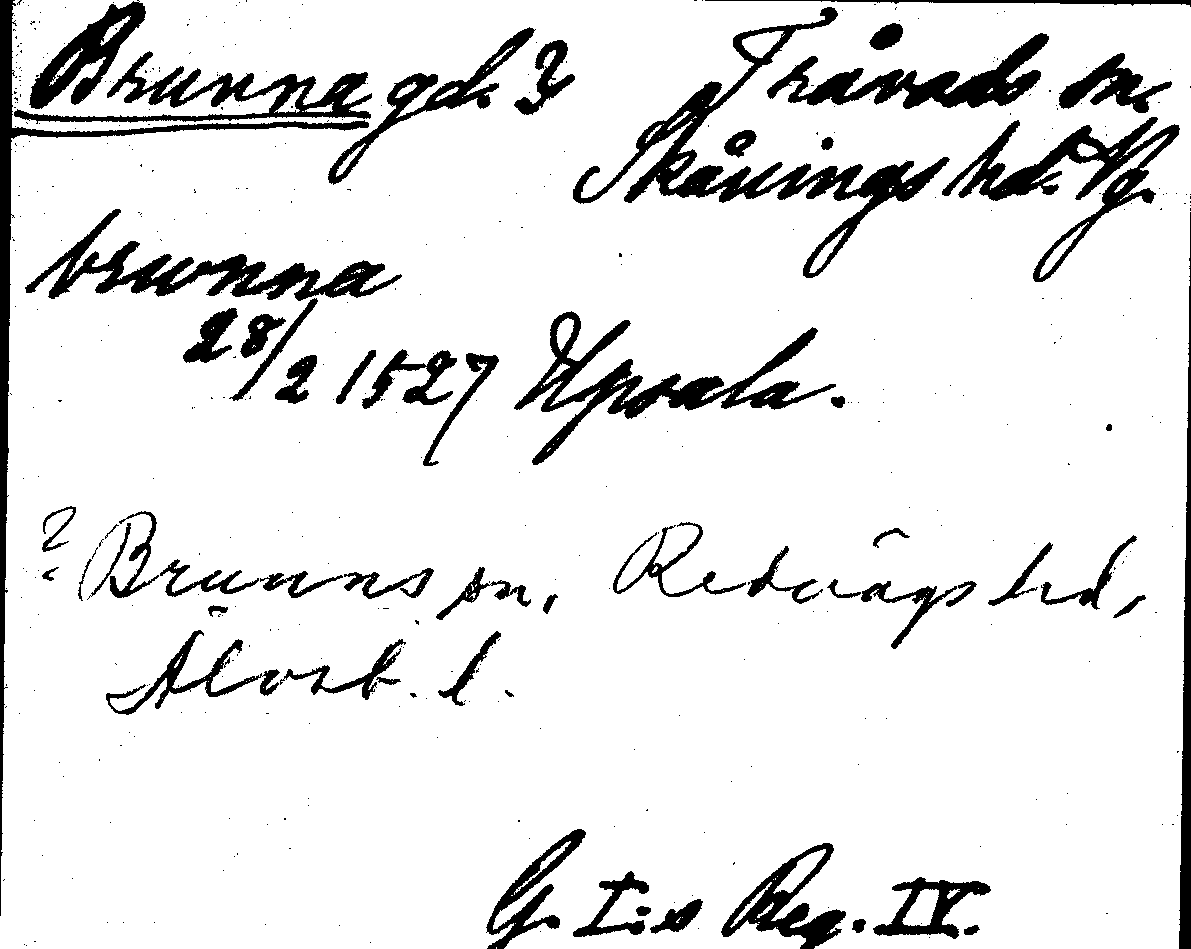 Brunna gd.? Trävads sn.
Skånings hd. Vg.
brwnna
28/2 1527 Upsala.
? Brunns sn, Redvägs hd,
Älvsb. l.
G. I:s Reg. IV.